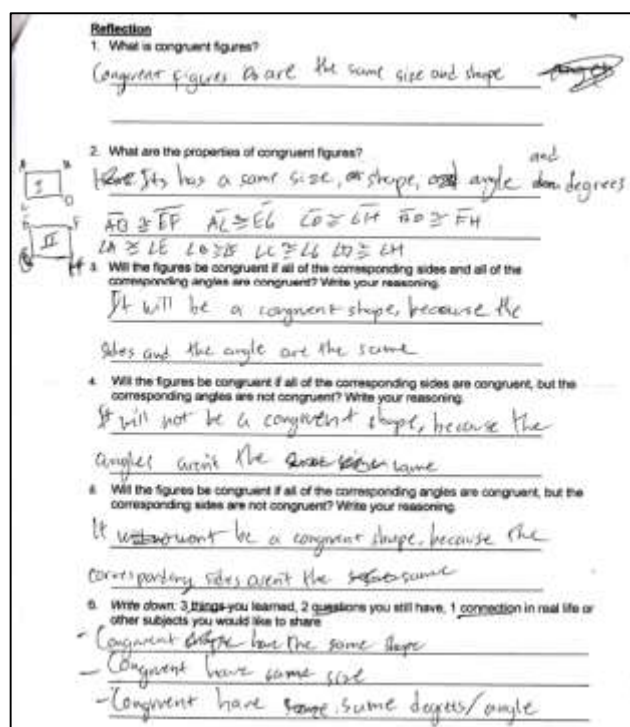 Reflection
1. What is congruent figures?
Congruent figures are the same size and shape
2. What are the properties of congruent figures?
and
Its has a same size, shape, angle degrees
A B
I
L D
E F
II
G H
AB ≅ EF AL ≅ EG LD ≅ GH BD ≅ FH
∠A ≅ ∠E ∠B ≅ ∠F ∠L ≅ ∠G ∠D ≅ ∠H
3. Will the figures be congruent if all of the corresponding sides and all of the
corresponding angles are congruent? Write your reasoning.
It will be a congruent shape, because the
sides and the angle are the same
4. Will the figures be congruent if all of the corresponding sides are congruent, but the
corresponding angles are not congruent? Write your reasoning.
It will not be a congruent shape, because the
angles aren't the same
5. Will the figures be congruent if all of the corresponding angles are congruent, but the
corresponding sides are not congruent? Write your reasoning.
It wont be a congruent shape, because the
corresponding sides arent the same
6. Write down: 3 things you learned, 2 questions you still have, 1 connection in real life or
other subjects you would like to share
- Congruent have the same shape
- Congruent have same size
- Congruent have same degrees/angle